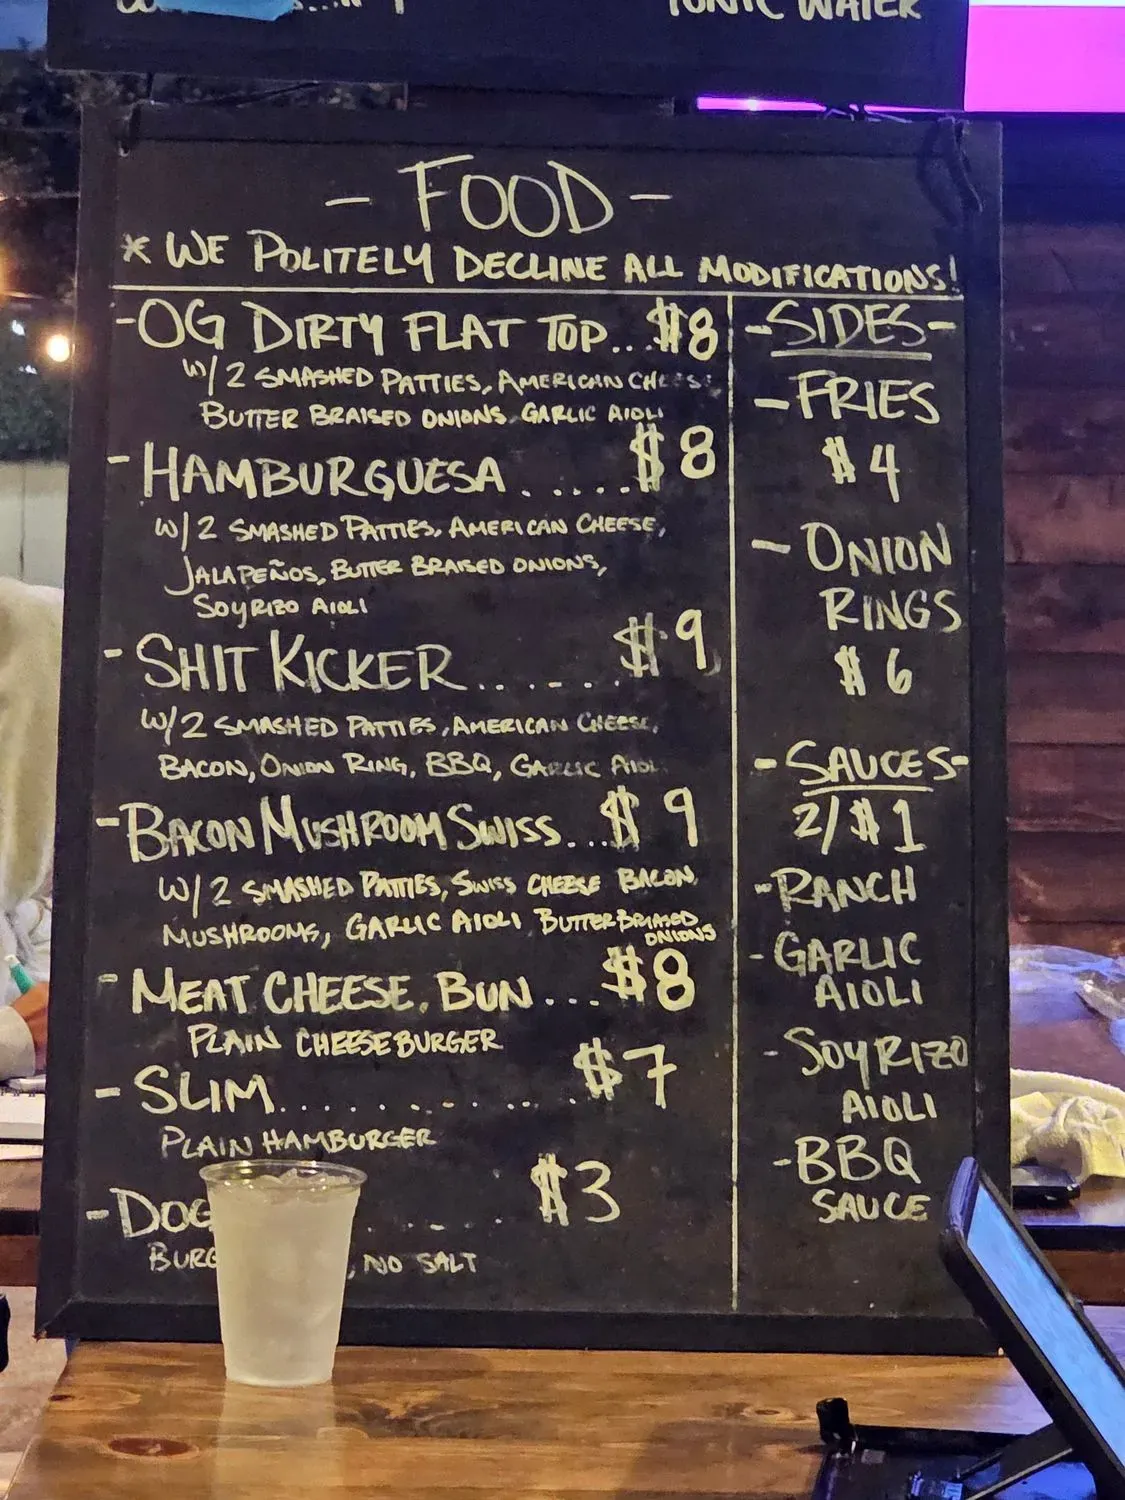 TONIC WATER
- FOOD -
* WE POLITELY DECLINE ALL MODIFICATIONS!
- OG DIRTY FLAT TOP... $8
W/ 2 SMASHED PATTIES, AMERICAN CHEESE
BUTTER BRAISED ONIONS, GARLIC AIOLI
- HAMBURGUESA ..... $8
W/ 2 SMASHED PATTIES, AMERICAN CHEESE,
JALAPEÑOS, BUTTER BRAISED ONIONS,
SOYRIZO AIOLI
- SHIT KICKER...... $9
W/ 2 SMASHED PATTIES, AMERICAN CHEESE,
BACON, ONION RING, BBQ, GARLIC AIOLI
- BACON MUSHROOM SWISS... $9
W/ 2 SMASHED PATTIES, SWISS CHEESE BACON,
MUSHROOMS, GARLIC AIOLI BUTTER BRIASED
ONIONS
- MEAT, CHEESE, BUN... $8
PLAIN CHEESEBURGER
- SLIM............. $7
PLAIN HAMBURGER
- DOG ..... $3
BURG , NO SALT
- SIDES -
- FRIES
$4
- ONION
RINGS
$6
- SAUCES -
2/$1
- RANCH
- GARLIC
AIOLI
- SOYRIZO
AIOLI
- BBQ
SAUCE